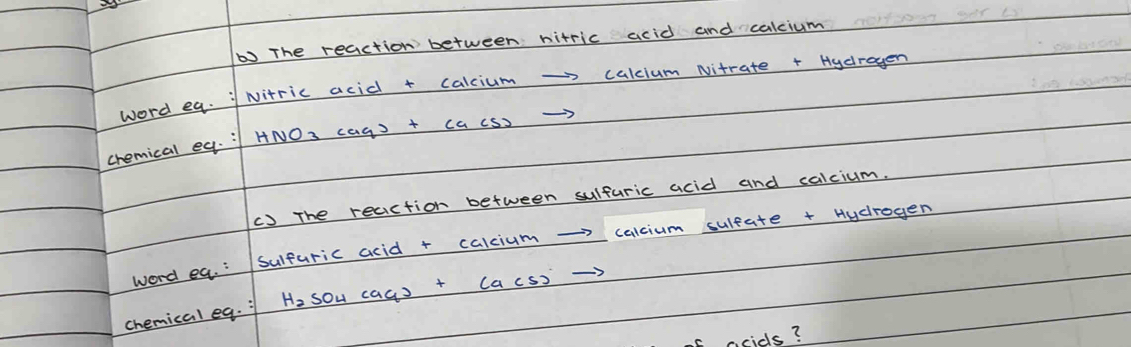 b) The reaction between nitric acid and calcium
word eq. : Nitric acid + calcium → calcium Nitrate + Hydrogen
chemical eq. : HNO3 (aq) + Ca (s) →
c) The reaction between sulfuric acid and calcium.
word eq. : sulfuric acid + calcium → calcium sulfate + Hydrogen
chemical eq. : H2SO4 (aq) + Ca (s) →
of acids?